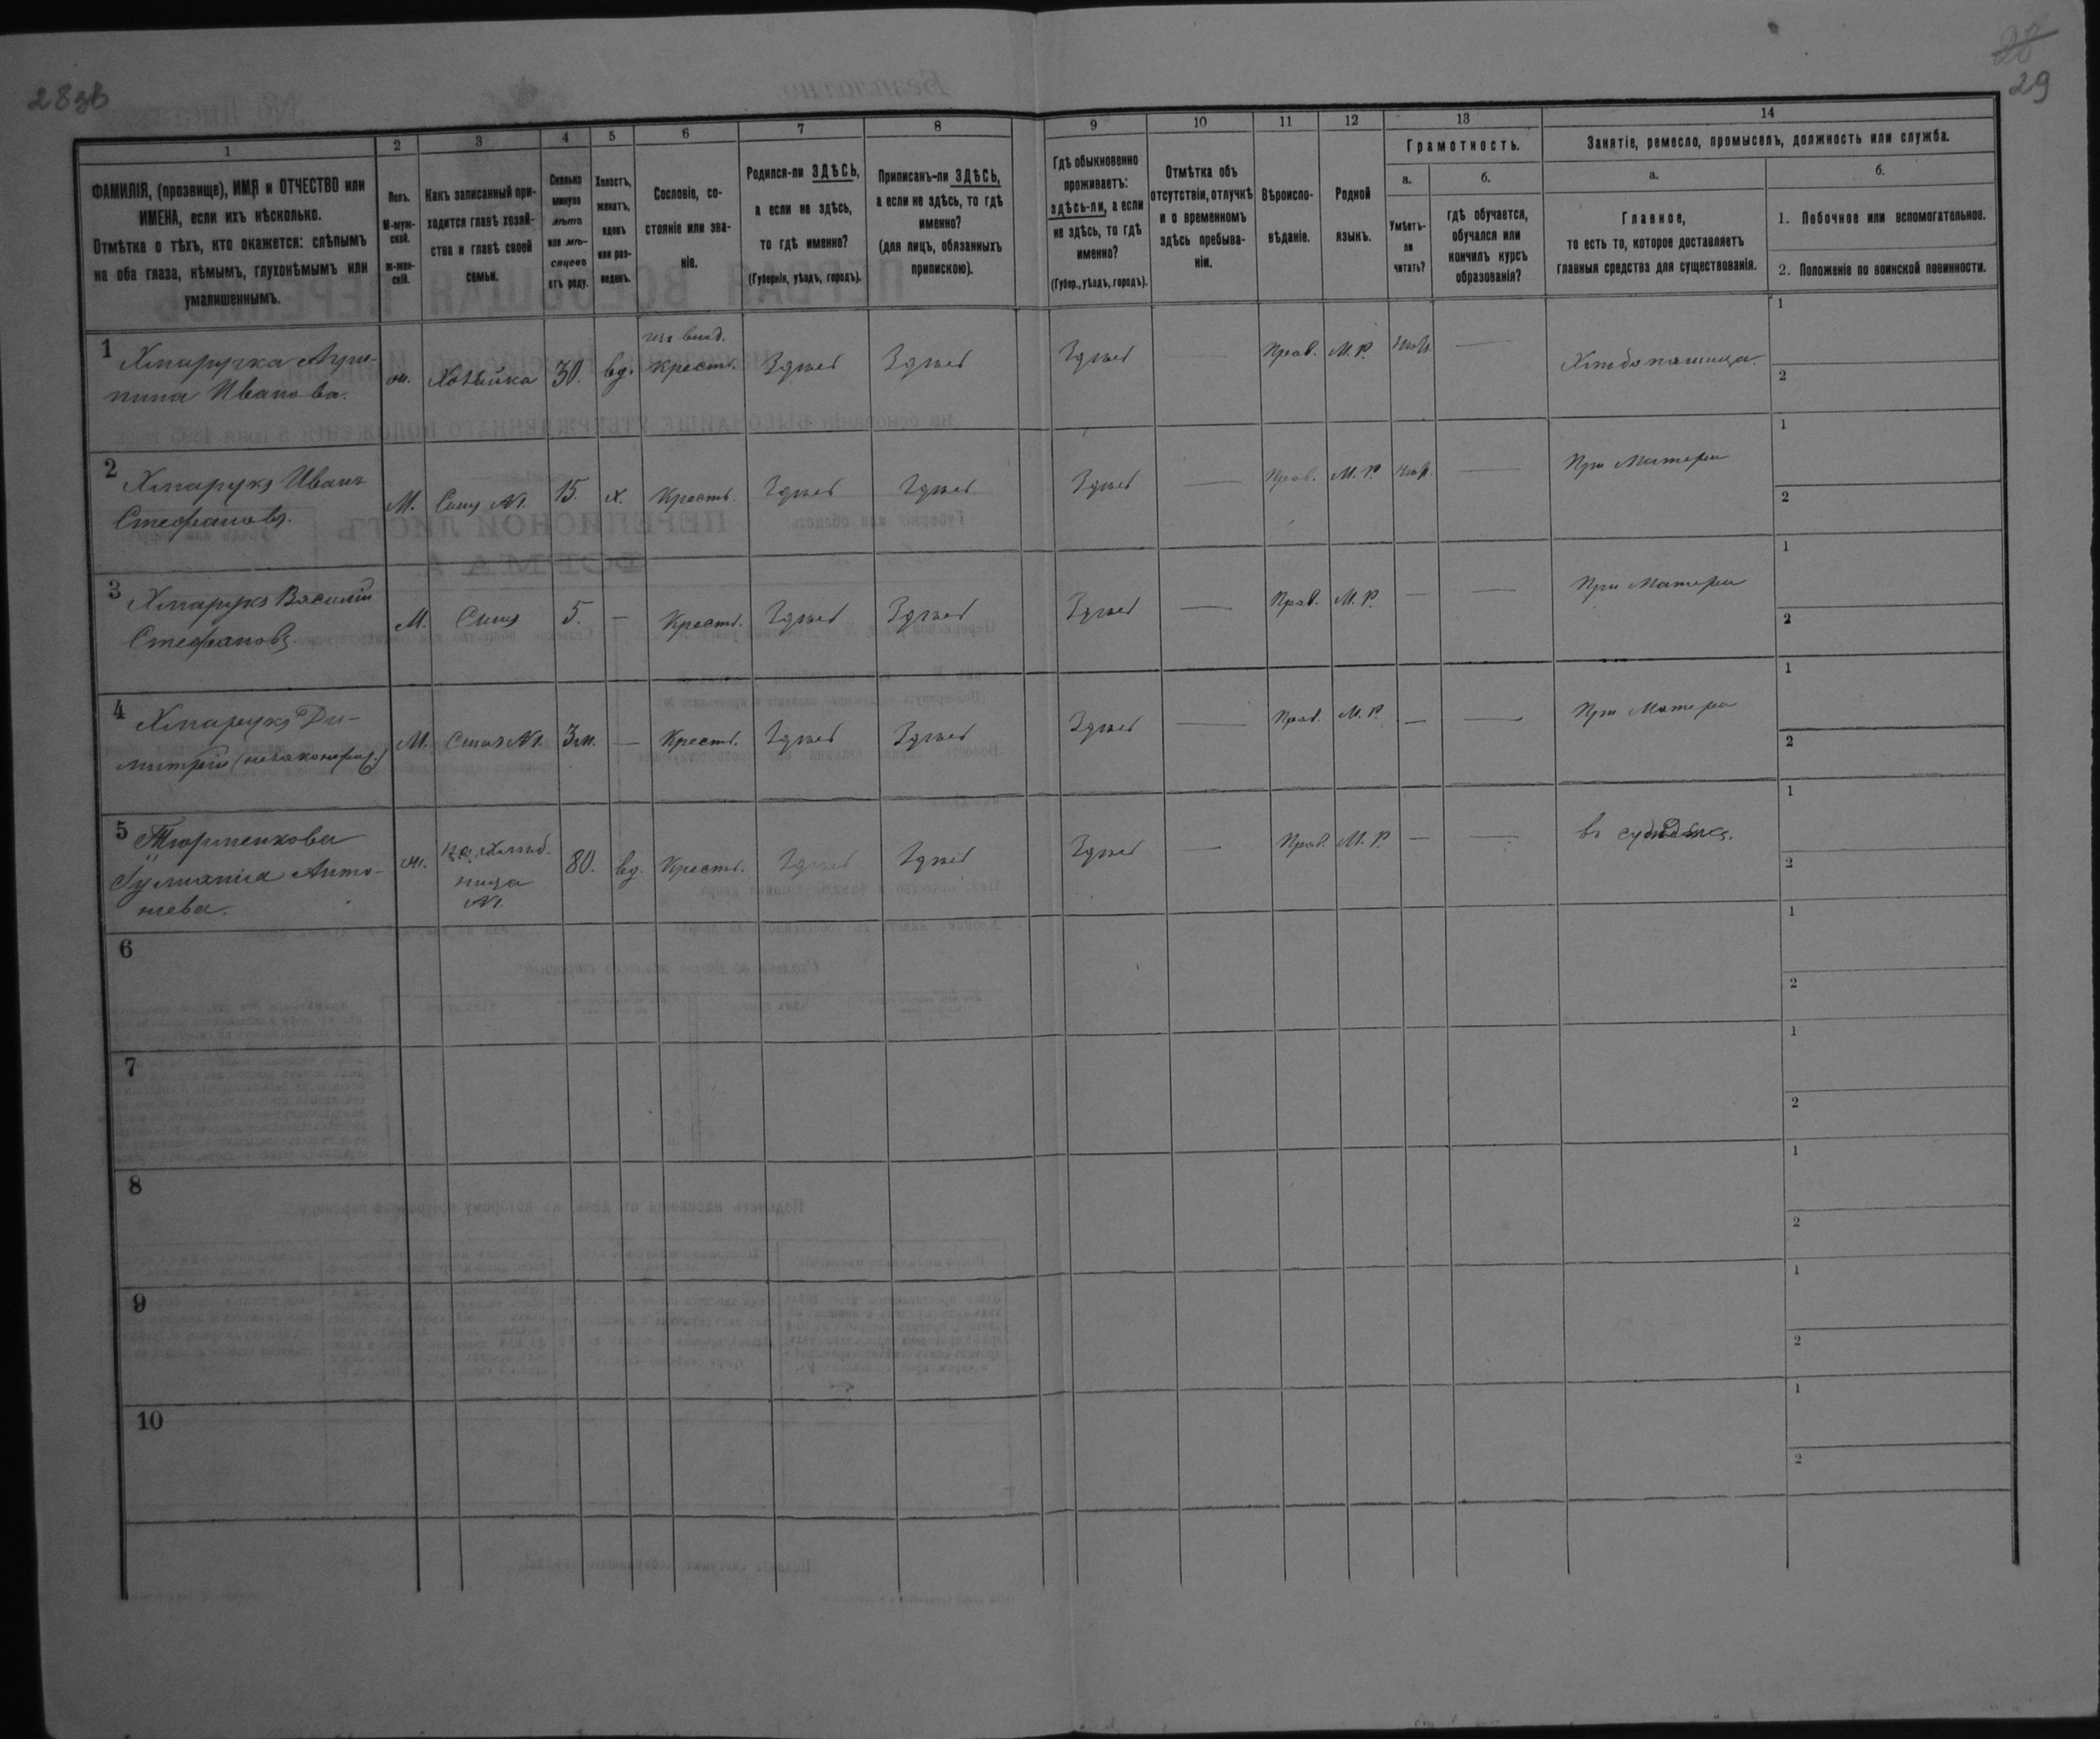 28зв
28
29
1
2
3
4
5
6
7
8
9
10
11
12
13
14
ФАМИЛІЯ, (прозвище), ИМЯ и ОТЧЕСТВО или
ИМЕНА, если ихъ нѣсколько.
Отмѣтка о тѣхъ, кто окажется: слѣпымъ
на оба глаза, нѣмымъ, глухонѣмымъ или
умалишеннымъ.
Полъ.
М-муж-
ской.
ж-жен-
скій.
Какъ записанный при-
ходится главѣ хозяй-
ства и главѣ своей
семьи.
Сколько
минуло
лѣтъ
или мѣ-
сяцевъ
отъ роду.
Холостъ,
женатъ,
вдовъ
или раз-
веденъ.
Сословіе, со-
стояніе или зва-
ніе.
Родился-ли ЗДѢСЬ,
а если не здѣсь,
то гдѣ именно?
(Губернія, уѣздъ, городъ).
Приписанъ-ли ЗДѢСЬ,
а если не здѣсь, то гдѣ
именно?
(для лицъ, обязанныхъ
припискою).
Гдѣ обыкновенно
проживаетъ:
здѣсь-ли, а если
не здѣсь, то гдѣ
именно?
(Губер., уѣздъ, городъ).
Отмѣтка объ
отсутствіи, отлучкѣ
и о временномъ
здѣсь пребыва-
ніи.
Вѣроиспо-
вѣданіе.
Родной
языкъ.
Грамотность.
а.
Умѣетъ-
ли
читать?
б.
гдѣ обучается,
обучался или
кончилъ курсъ
образованія?
Занятіе, ремесло, промыселъ, должность или служба.
а.
Главное,
то есть то, которое доставляетъ
главныя средства для существованія.
б.
1. Побочное или вспомогательное.
2. Положеніе по воинской повинности.
1 Хмаручка Агри-
пина Иванова.
ж. Хозяйка 30. вд. Крестъ. Здѣсь Здѣсь Здѣсь — Прав. М. Р. — Хлѣбопашица.
1
2
2 Хмарукъ Иванъ
Стефановъ.
М. Сынъ №1. 15. х. Крестъ. Здѣсь Здѣсь Здѣсь — Прав. М. Р. — При Матери
1
2
3 Хмарукъ Василій
Стефановъ.
М. Сынъ 5. — Крестъ. Здѣсь Здѣсь Здѣсь — Прав. М. Р. — — При Матери
1
2
4 Хмарукъ Ди-
митрій (незаконорож.)
М. Сынъ №1. 3 м. — Крестъ. Здѣсь Здѣсь Здѣсь — Прав. М. Р. — — При Матери
1
2
5
Анто-
ніева.
ж. ница
№1.
80. вд. Крестъ. Здѣсь Здѣсь Здѣсь — Прав. М. Р. — — въ
1
2
6
1
2
7
1
2
8
1
2
9
1
2
10
1
2